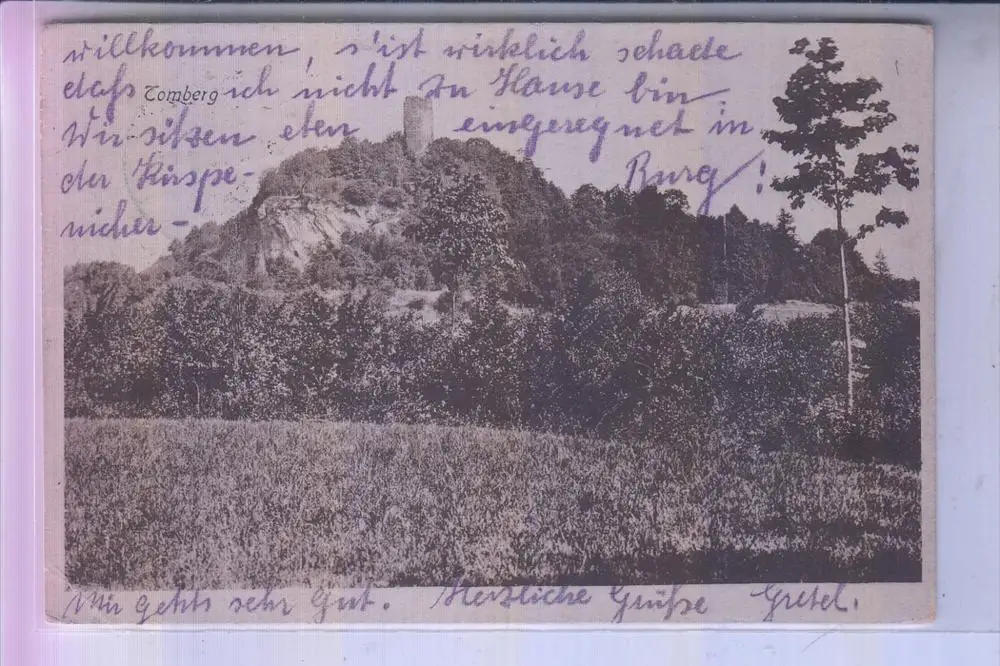 willkommen, s'ist wirklich schade
dass ich nicht zu Hause bin.
Tomberg
Wir sitzen eben eingeregnet in
der Küspe- Burg!
nicher -
Mir gehts sehr gut. Herzliche Grüße Gretel.